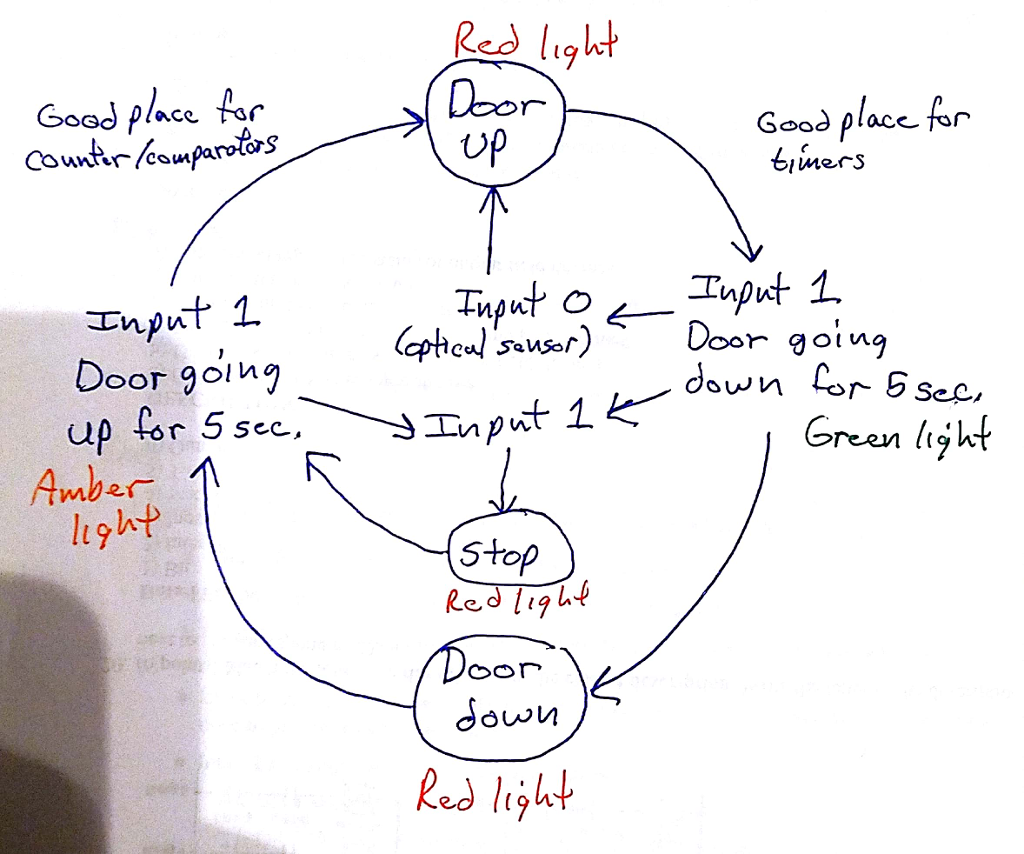 Red light
Door
up
Good place for
counter/comparators
Good place for
timers
Input 1
Door going
up for 5 sec.
Amber
light
Input 0
(optical sensor)
Input 1
Door going
down for 5 sec.
Green light
Input 1
Stop
Red light
Door
down
Red light